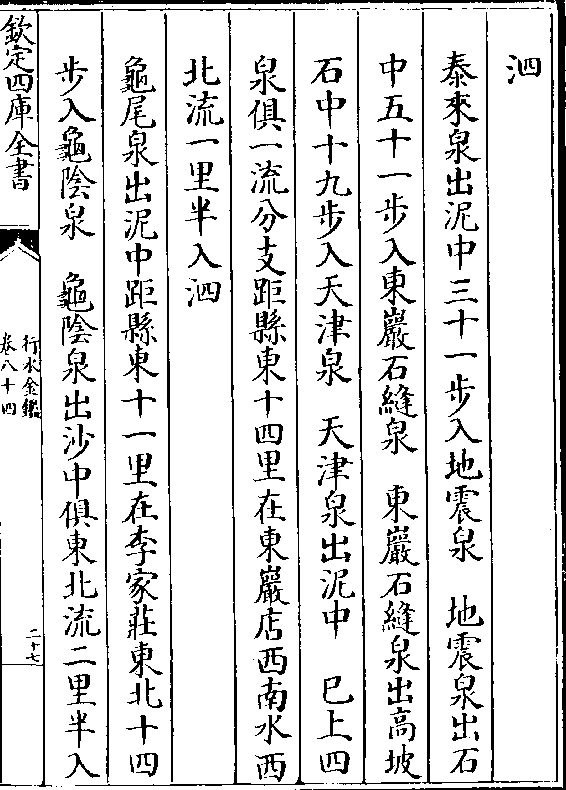 泗
泰來泉出泥中三十一步入地震泉　地震泉出石
中五十一步入東巖石縫泉　東巖石縫泉出高坡
石中十九步入天津泉　天津泉出泥中　已上四
泉俱一流分支距縣東十四里在東巖店西南水西
北流一里半入泗
龜尾泉出泥中距縣東十一里在李家莊東北十四
步入龜陰泉　龜陰泉出沙中俱東北流二里半入
欽定四庫全書
行水金鑑
卷八十四
二十七